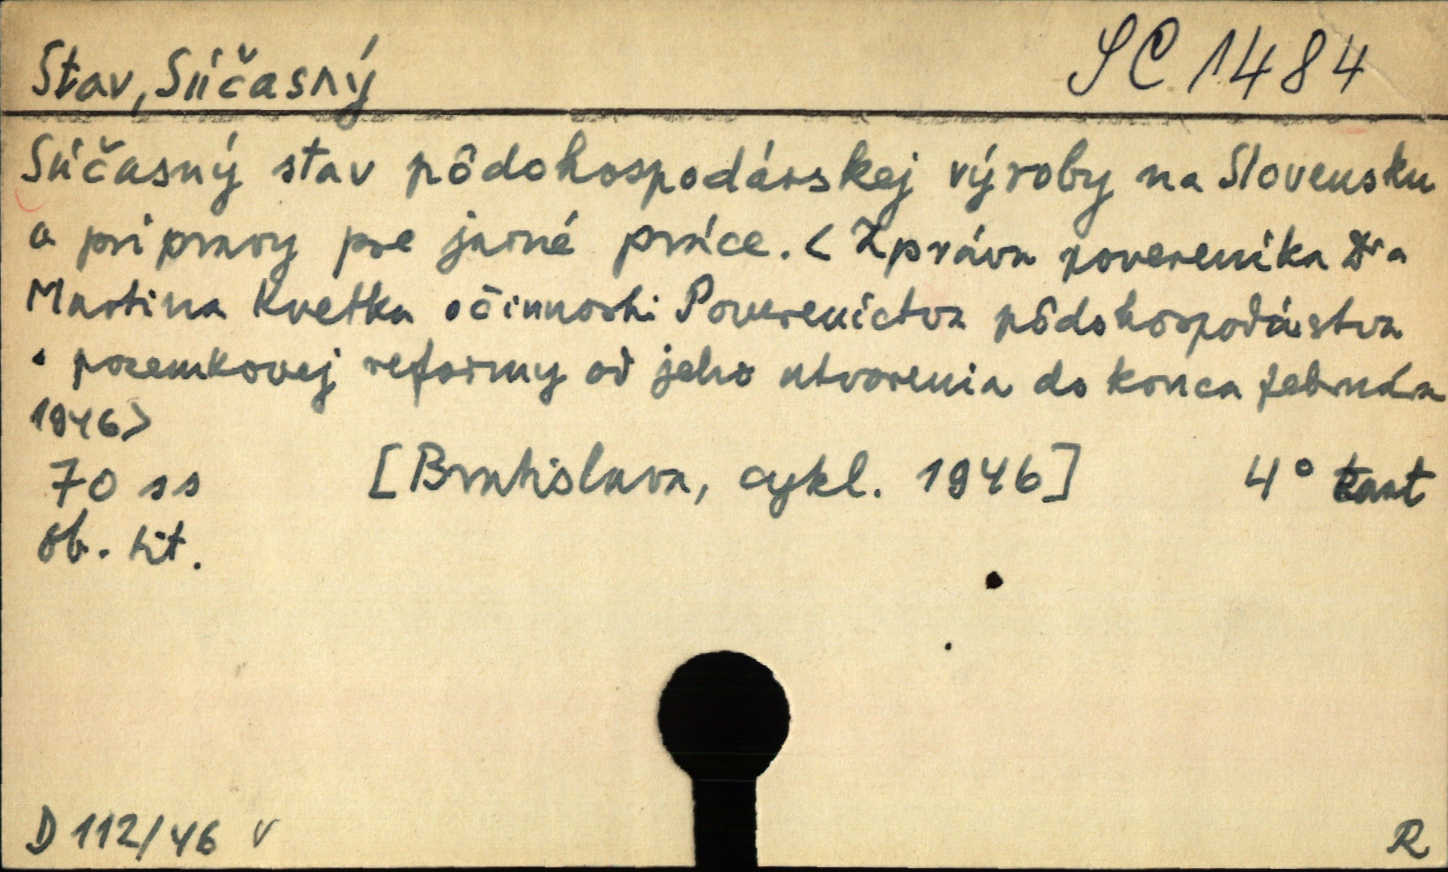 Stav, Súčasný
SC 1484
Súčasný stav pôdohospodárskej výroby na Slovensku
a prípravy pre jarné práce. < Zpráva povereníka Dra
Martina Kvetka o činnosti Povereníctva pôdohospodárstva
a pozemkovej reformy od jeho utvorenia do konca februára
1946>
70 ss [Bratislava, cykl. 1946] 4°
ob. tit.
D 112/46 v
R